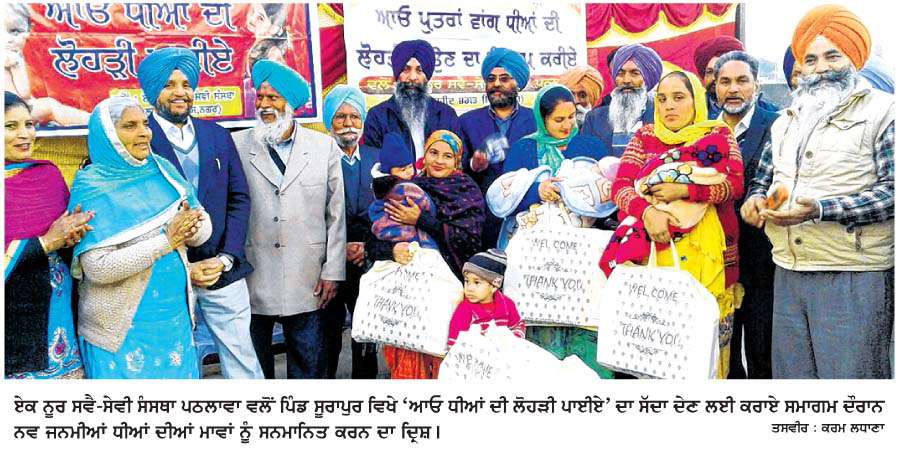 ਆਓ ਧੀਆਂ ਦੀ
ਲੋਹੜੀ ਪਾਈਏ
ਆਓ ਪੁਤਰਾਂ ਵਾਂਗ ਧੀਆਂ ਦੀ
ਲੋਹੜੀ ਦਾ ਕਰੀਏ
WELCOME
THANK YOU
WELCOME
THANK YOU
THANK YOU
WELCOME
ਏਕ ਨੂਰ ਸਵੈ-ਸੇਵੀ ਸੰਸਥਾ ਪਠਲਾਵਾ ਵਲੋਂ ਪਿੰਡ ਸੂਰਾਪੁਰ ਵਿਖੇ 'ਆਓ ਧੀਆਂ ਦੀ ਲੋਹੜੀ ਪਾਈਏ' ਦਾ ਸੱਦਾ ਦੇਣ ਲਈ ਕਰਾਏ ਸਮਾਗਮ ਦੌਰਾਨ
ਨਵ ਜਨਮੀਆਂ ਧੀਆਂ ਦੀਆਂ ਮਾਵਾਂ ਨੂੰ ਸਨਮਾਨਿਤ ਕਰਨ ਦਾ ਦ੍ਰਿਸ਼।
ਤਸਵੀਰ : ਕਰਮ ਲਧਾਣਾ